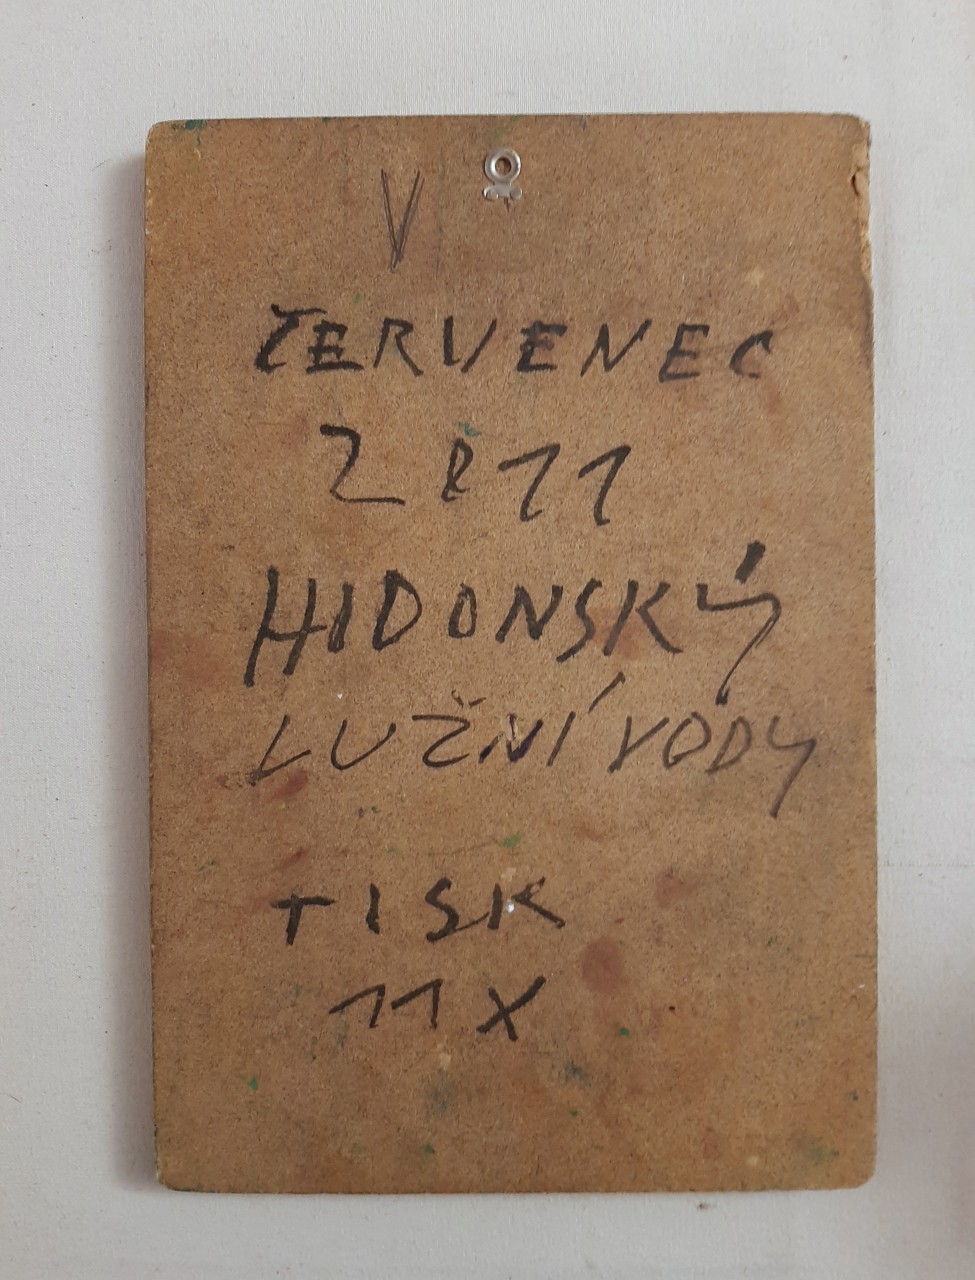 V
ČERVENEC
2011
HIDONSKÝ
LUŽNÍ VODY
TISK
11 X